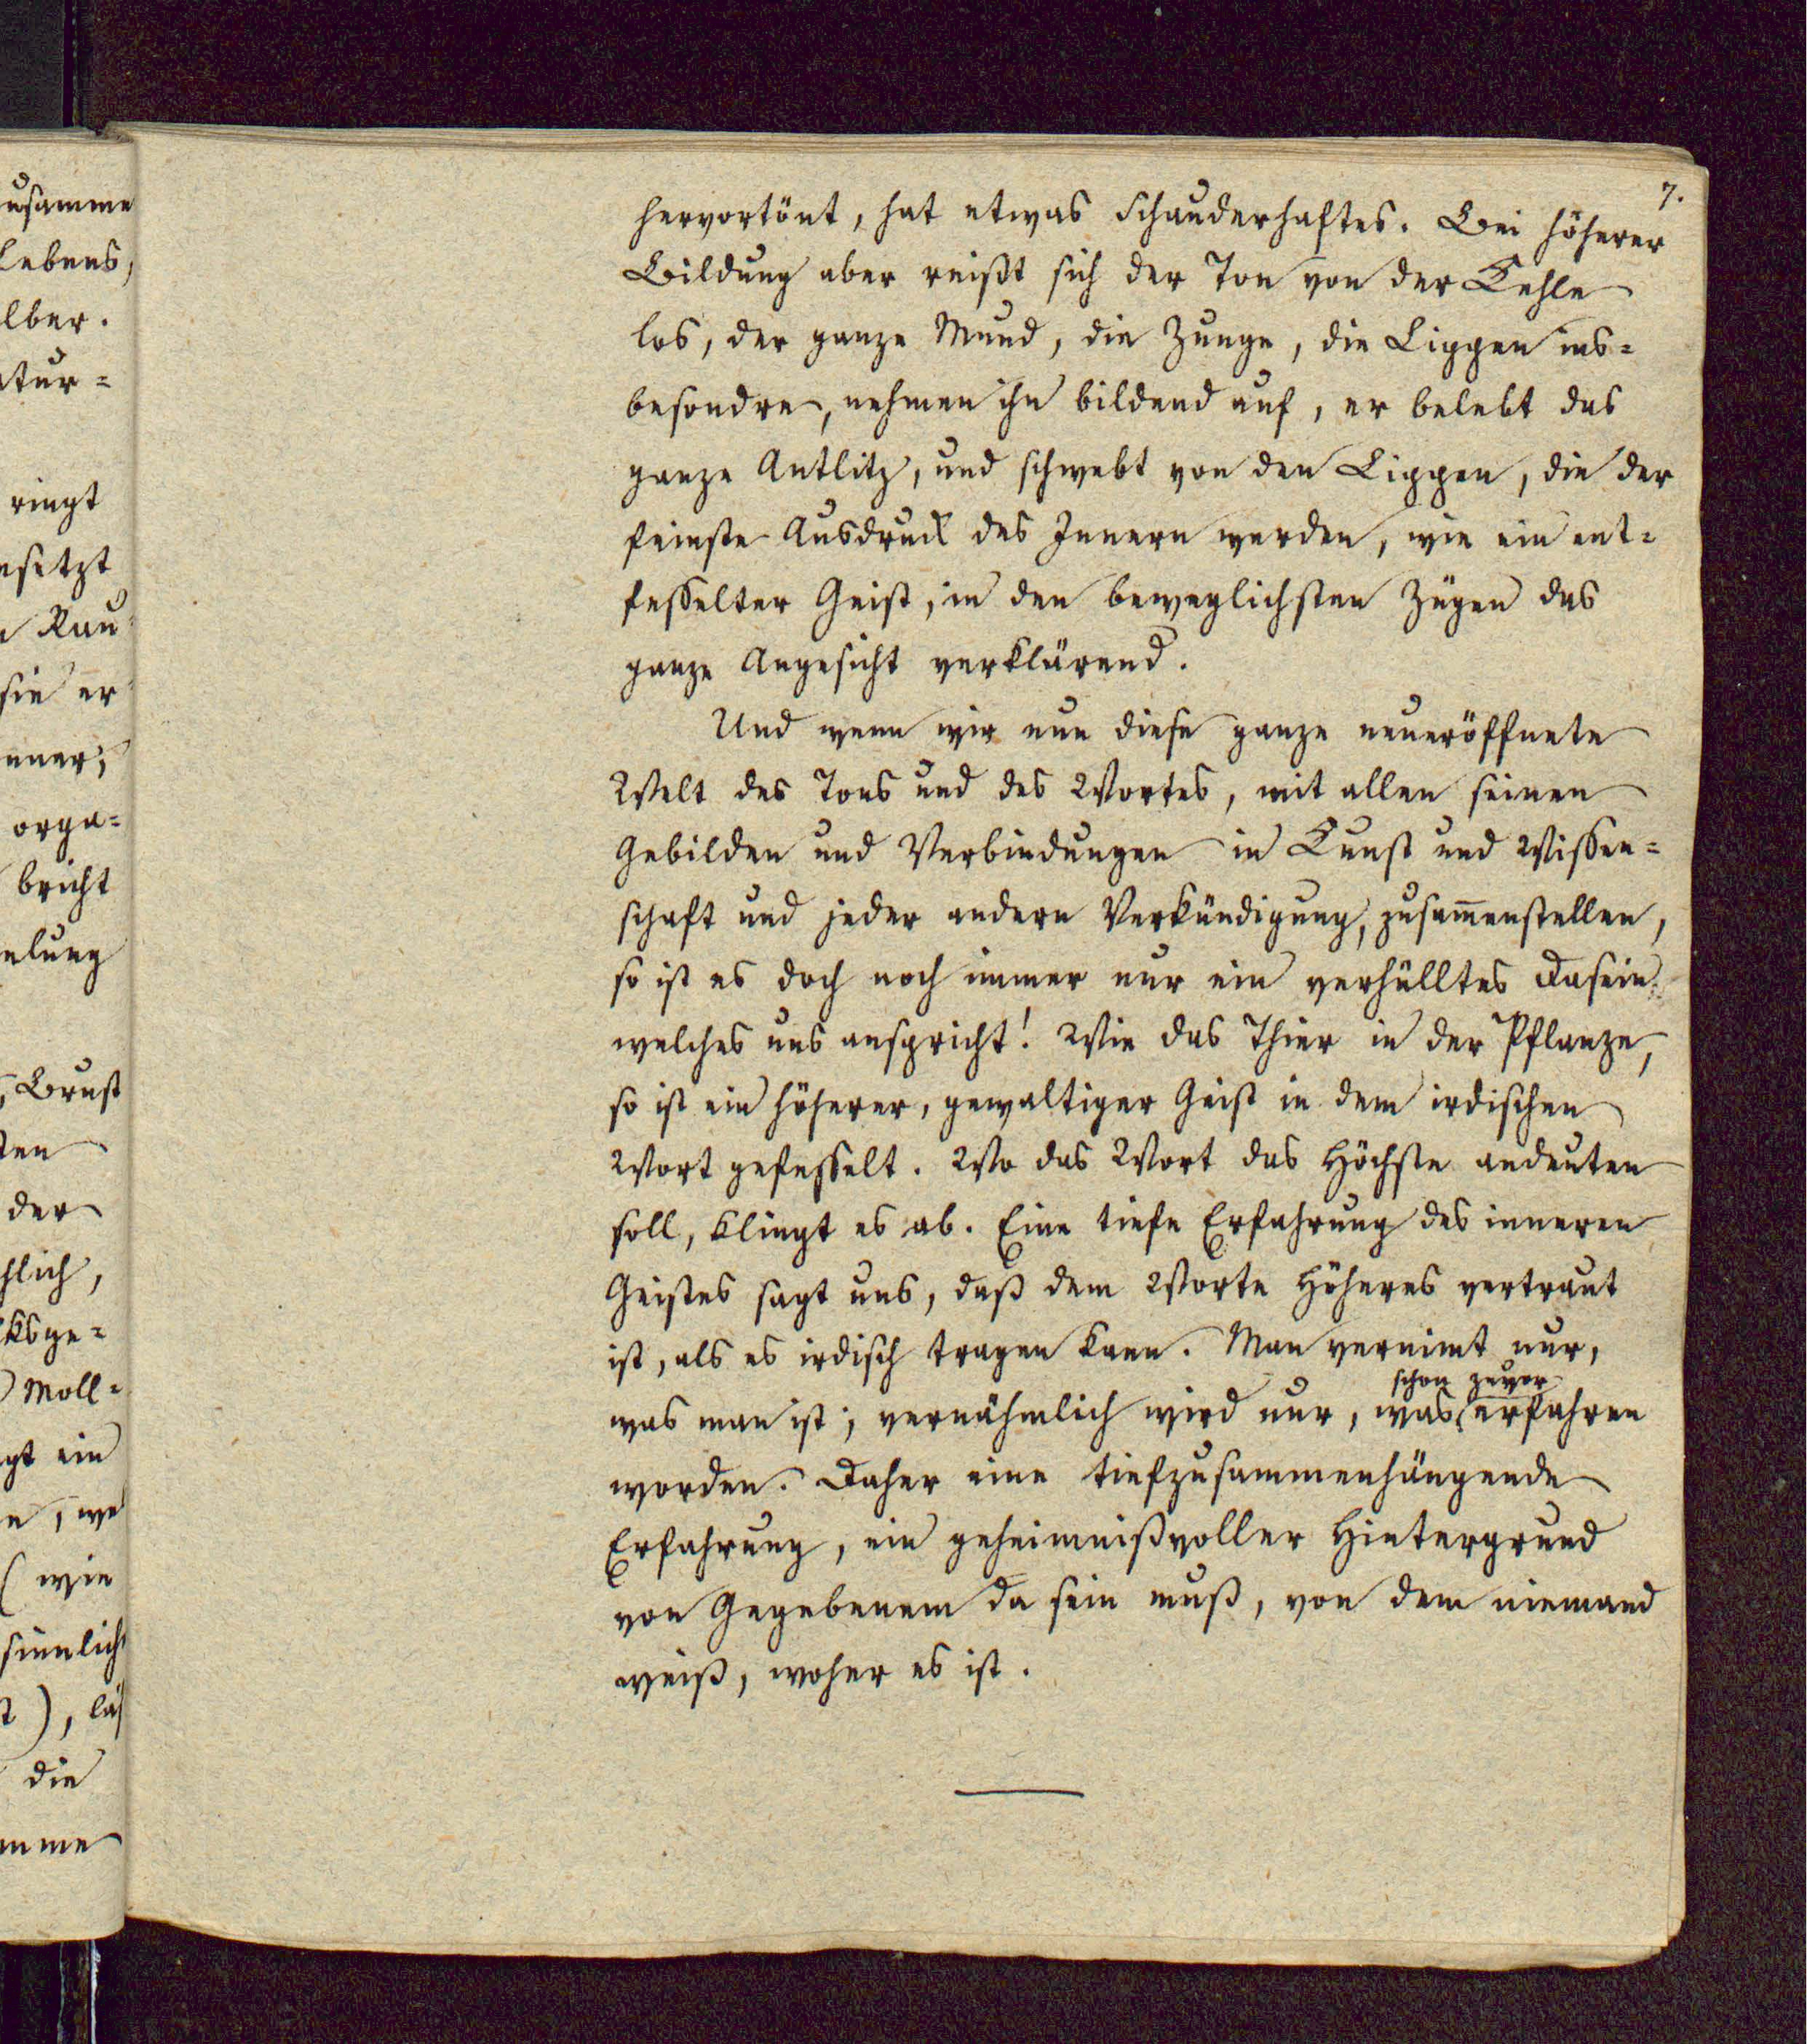 usamme
Lebens,
lber.
tur=
ringt
setzt
Rau
sie er
nner;
orga=
bricht
elung
Brust
ten
der
hlich,
ksge=
Moll=
gt ein
n, we
(wie
sinnlich
t), läs
die
mme
7.
hervortönt, hat etwas schauderhaftes. Bei höherer
Bildung aber reißt sich der Ton von der Kehle
los, der ganze Mund, die Zunge, die Lippen ins=
besondre, nehmen ihn bildend auf, er belebt das
ganze Antlitz, und schwebt von den Lippen, die der
feinste Ausdruck des Innern werden, wie ein ent=
fesselter Geist, in den beweglichsten Zügen das
ganze Angesicht verklärend.
Und wenn wir nun diese ganze neueröffnete
Welt des Tons und des Wortes, mit allen seinen
Gebilden und Verbindungen in Kunst und Wissen=
schaft und jeder andern Verkündigung, zusam̄enstellen,
so ist es doch noch immer nur ein verhülltes Dasein
welches uns anspricht! Wie das Thier in der Pflanze,
so ist ein höherer, gewaltiger Geist in dem irdischen
Wort gefesselt. Wo das Wort das Höchste andeuten
soll, klingt es ab. Eine tiefe Erfahrung des inneren
Geistes sagt uns, daß dem Worte Höheres vertraut
ist, als es irdisch tragen kann. Man vernimt nur,
schon zuvor
was man ist; vernähmlich wird nur, was erfahren
worden. Daher eine tiefzusammenhängende
Erfahrung, ein geheimnißvoller Hintergrund
von Gegebenem da sein muß, von dem niemand
weiß, woher es ist.